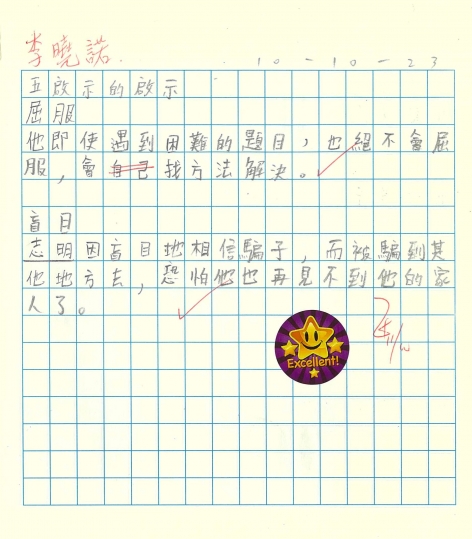 李曉諾
10-10-23
五啟示的啟示
屈服
他即使遇到困難的題目，也絕不會屈
服，會自己找方法解決。
盲目
志明因盲目地相信騙子，而被騙到其
他地方去，恐怕他也再見不到他的家
人了。
Excellent!